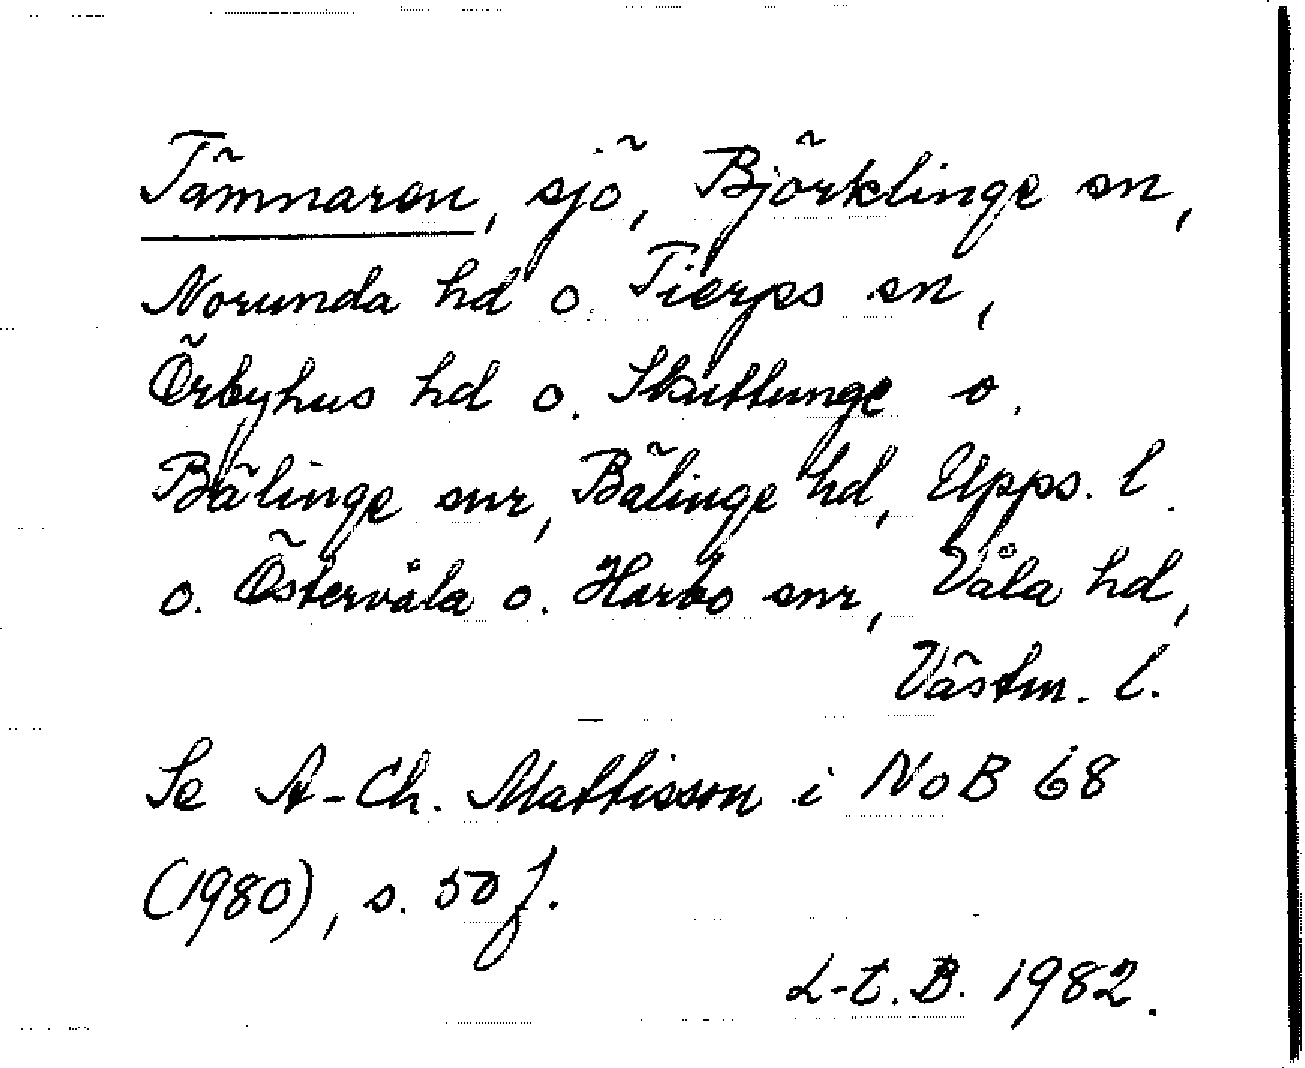 Tämnaren, sjö, Björklinge sn,
Norunda hd o. Tierps sn,
Örbyhus hd o. Skuttunge o.
Bälinge snr, Bälinge hd, Upps. l.
o. Östervåla o. Harbo snr, Våla hd,
Västm. l.
Se A-Ch. Mattisson i NoB 68
(1980), s. 50 f.
L-E.B. 1982.